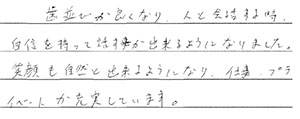 歯並びが良くなり、人と会話する時、
自信を持って話すが出来るようになりました。
笑顔も自然と出来るようになり、仕事、プラ
イベートが充実しています。